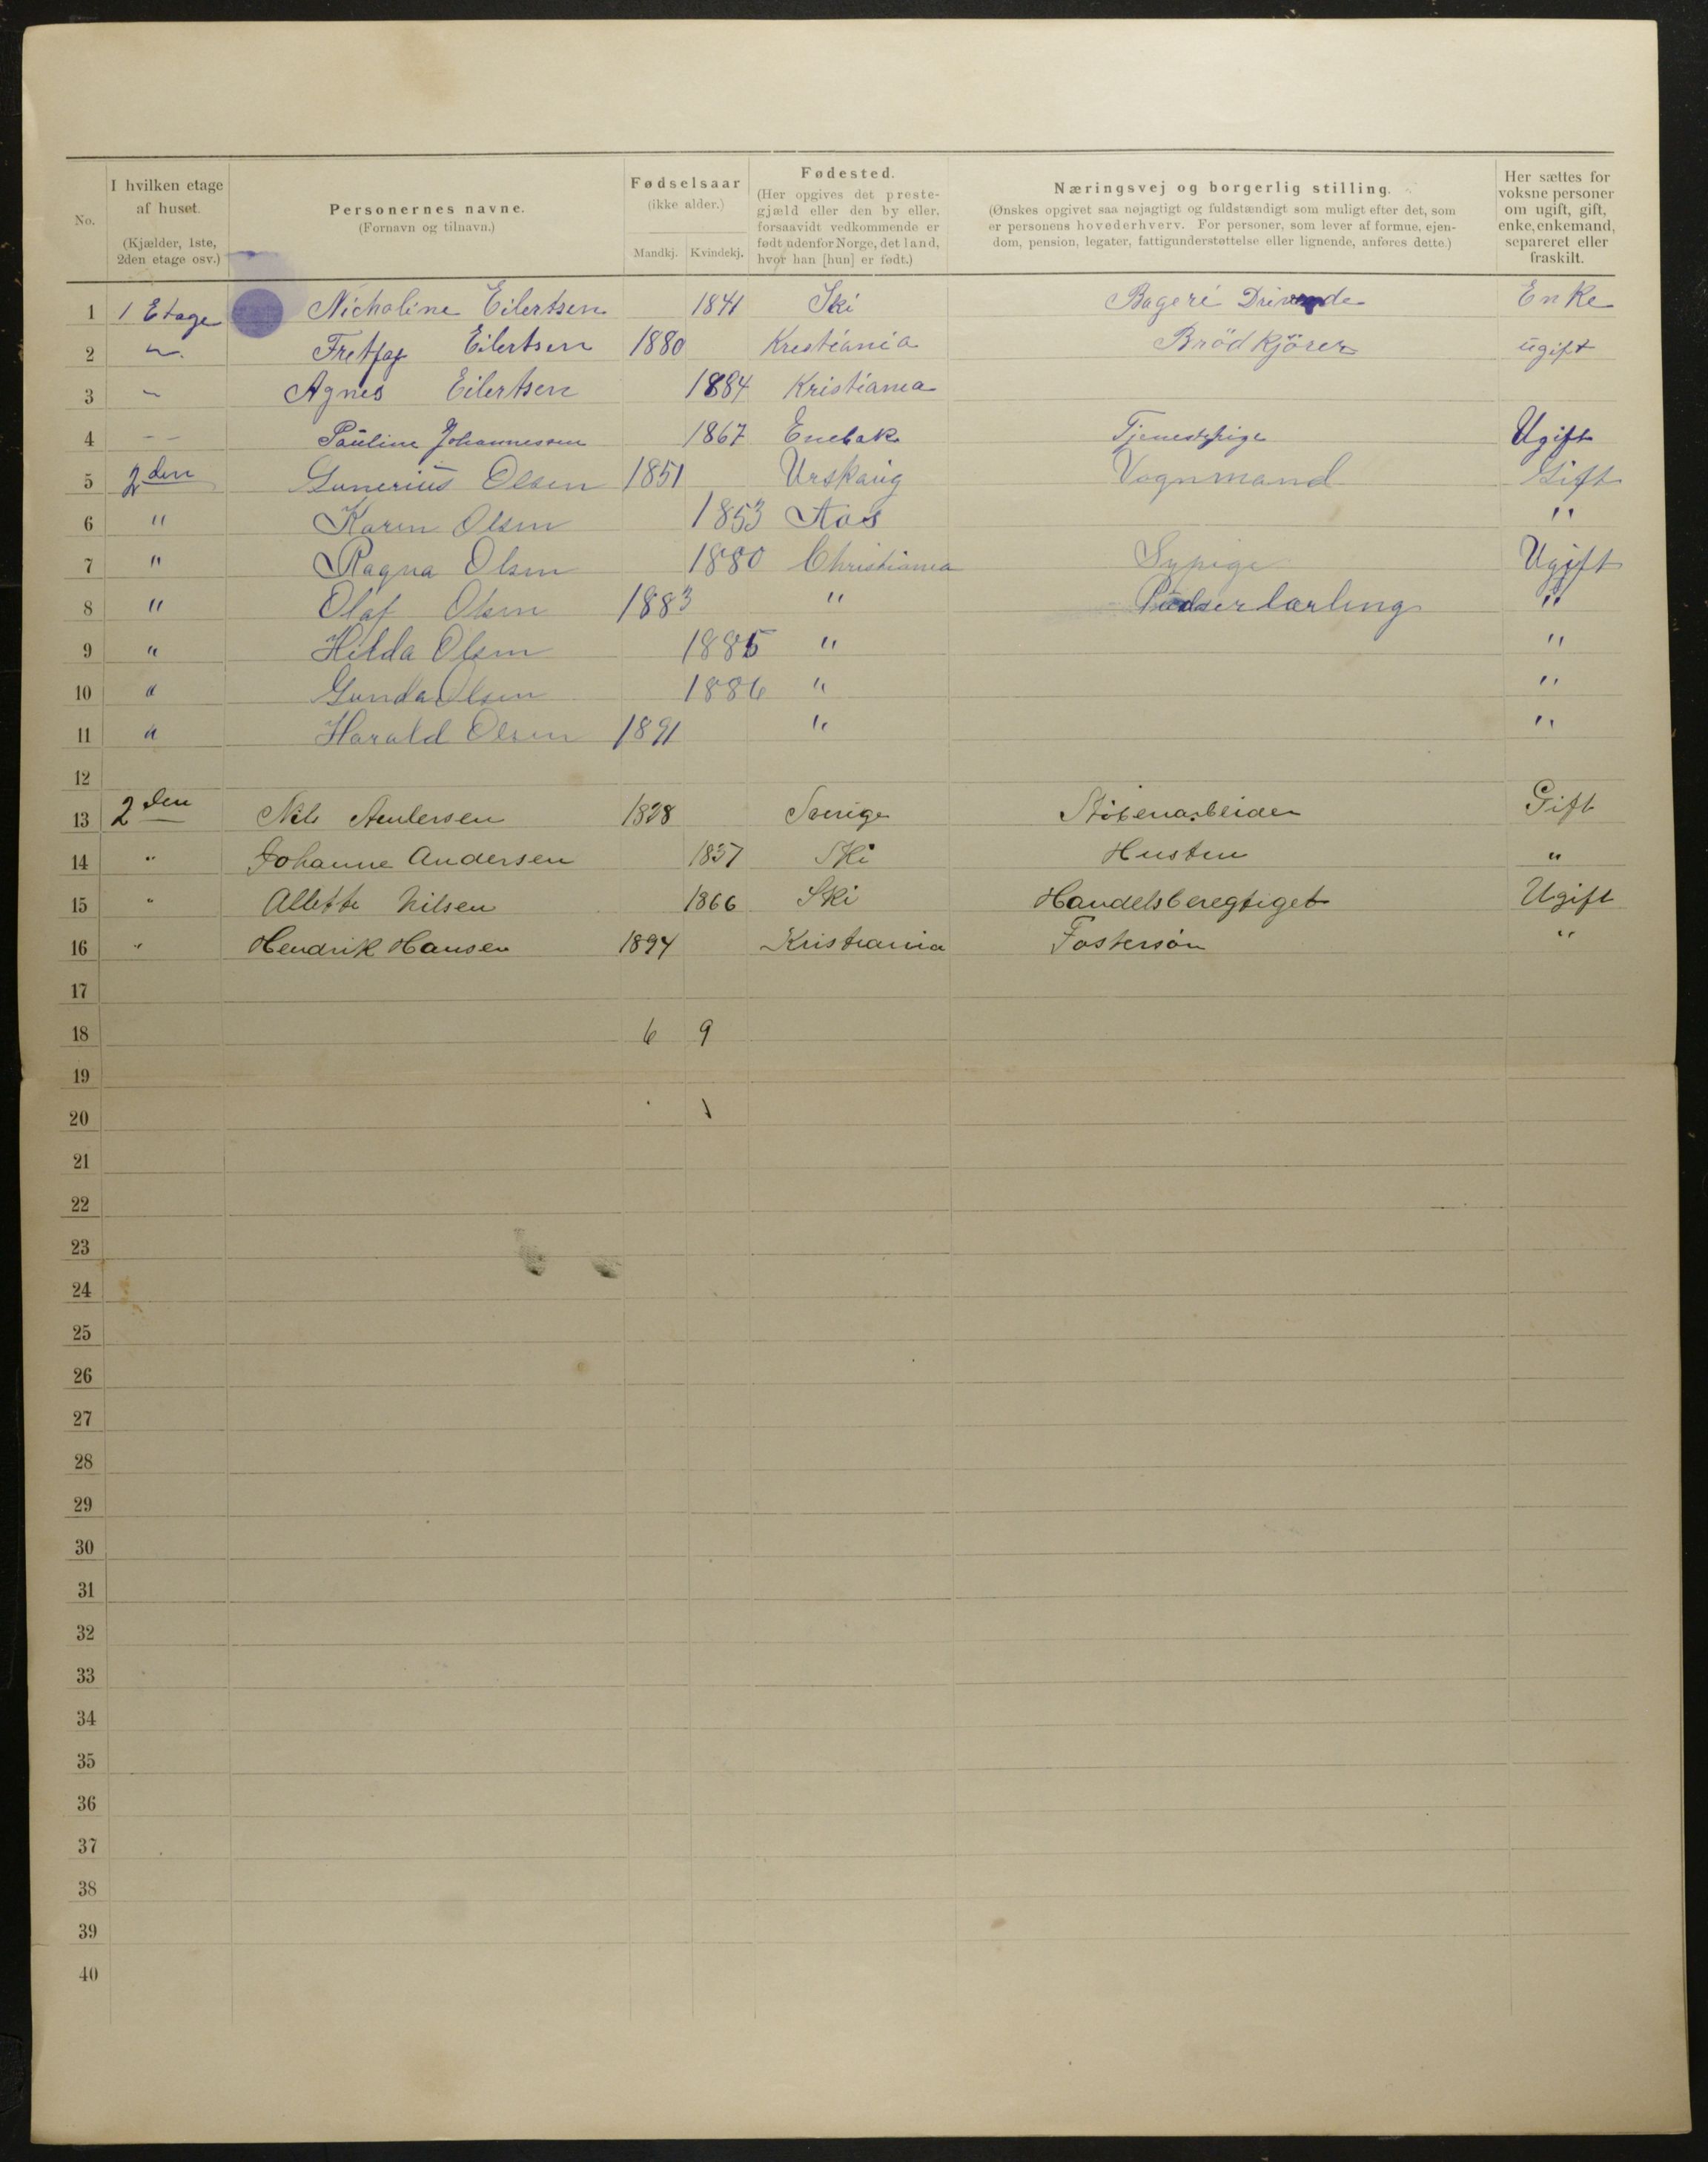 No. | I hvilken etage af huset. (Kjælder, 1ste, 2den etage osv.) | Personernes navne. (Fornavn og tilnavn.) | Fødselsaar (ikke alder.) Mandkj. | Kvindekj. | Fødested. (Her opgives det prestegjæld eller den by eller, forsaavidt vedkommende er født udenfor Norge, det land, hvor han [hun] er født.) | Næringsvej og borgerlig stilling. (Ønskes opgivet saa nøjagtigt og fuldstændigt som muligt efter det, som er personens hovederhverv. For personer, som lever af formue, ejendom, pension, legater, fattigunderstøttelse eller lignende, anføres dette.) | Her sættes for voksne personer om ugift, gift, enke, enkemand, separeret eller fraskilt.
1 1 Etage Nicholine Eilertsen 1841 Ski Bageri Drivende Enke
2 " Eilertsen 1880 Krestiania Brödkjörer ugift
3 " Agnes Eilertsen 1884 Kristiania
4 " Pauline Johannessen 1867 Enebak Tjenestpige Ugift
5 2den Gunerius Olsen 1851 Urskaug Vognmand Gift
6 " Karen Olsen 1853 Aas "
7 " Ragna Olsen 1880 Christiania Sypige Ugift
8 " Olaf Olsen 1883 " Pudserlærling "
9 " Hilda Olsen 1885 " "
10 " Gunda Olsen 1886 " "
11 " Harald Olsen 1891 " "
12
13 2den Nils Andersen 1828 Sverige Gift
14 " Johanne Andersen 1837 Ski Hustru "
15 " Allette Nilsen 1866 Ski Handelsberegtiget Ugift
16 " Hendrik Hansen 1894 Kristiania Fostersön "
17
18 6 9
19
20
21
22
23
24
25
26
27
28
29
30
31
32
33
34
35
36
37
38
39
40